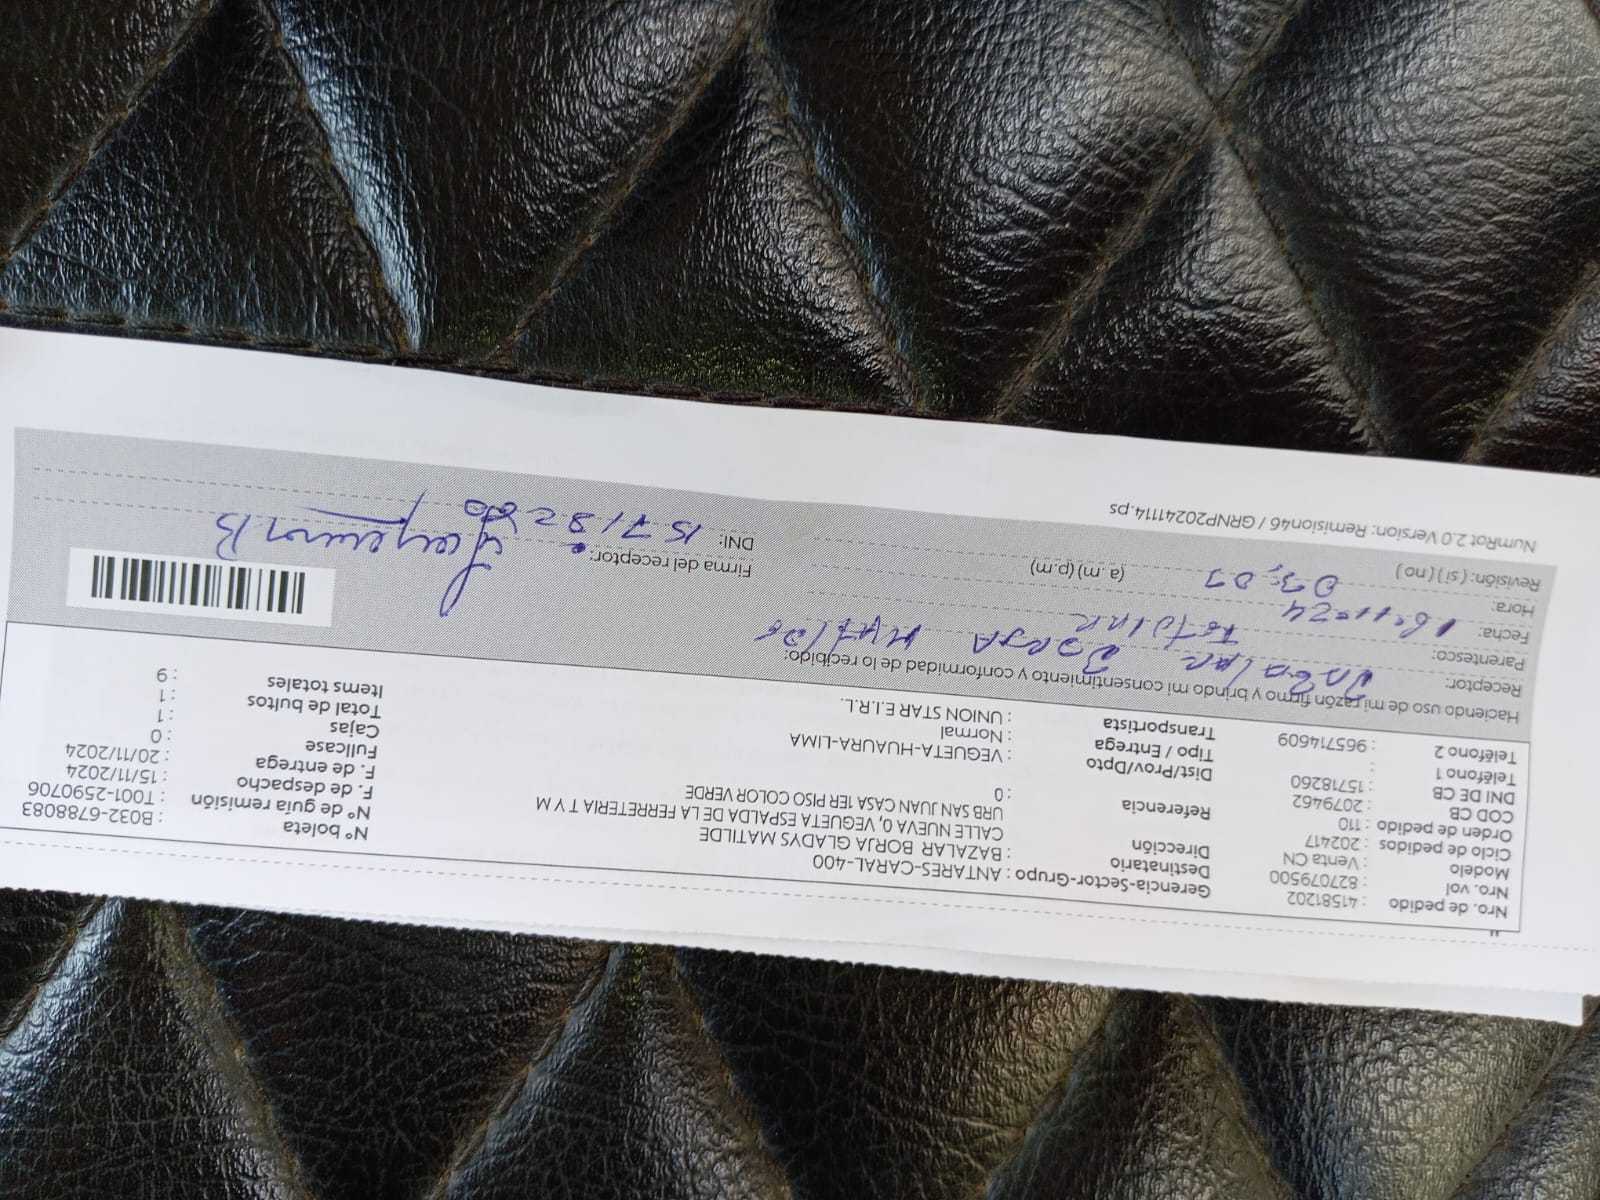 Nro. de pedido : 41581202
Nro. vol : 827079500
Modelo : Venta CN
Ciclo de pedidos : 202417
Orden de pedido : 110
COD CB : 2079462
DNI DE CB : 15718260
Teléfono 1 :
Teléfono 2 : 965714609
Gerencia-Sector-Grupo : ANTARES-CARAL-400
Destinatario : BAZALAR BORJA GLADYS MATILDE
Dirección CALLE NUEVA 0, VEGUETA ESPALDA DE LA FERRETERIA T Y M
URB SAN JUAN CASA 1ER PISO COLOR VERDE
Referencia : 0
Dist/Prov/Dpto : VEGUETA-HUAURA-LIMA
Tipo / Entrega : Normal
Transportista : UNION STAR E.I.R.L.
N° boleta : B032-6788083
N° de guía remisión : T001-2590706
F. de despacho : 15/11/2024
F. de entrega : 20/11/2024
Fullcase : 0
Cajas : 1
Total de bultos : 1
Items totales : 9
Haciendo uso de mi razón firmo y brindo mi consentimiento y conformidad de lo recibido:
Receptor: BORJA
Parentesco: Titular
Fecha: 16-11-24
Hora: 03:07 (a.m) (p.m)
Revisión: ( sí ) ( no )
Firma del receptor:
DNI: 15718260
NumRot 2.0 Version: Remision46 / GRNP20241114.ps